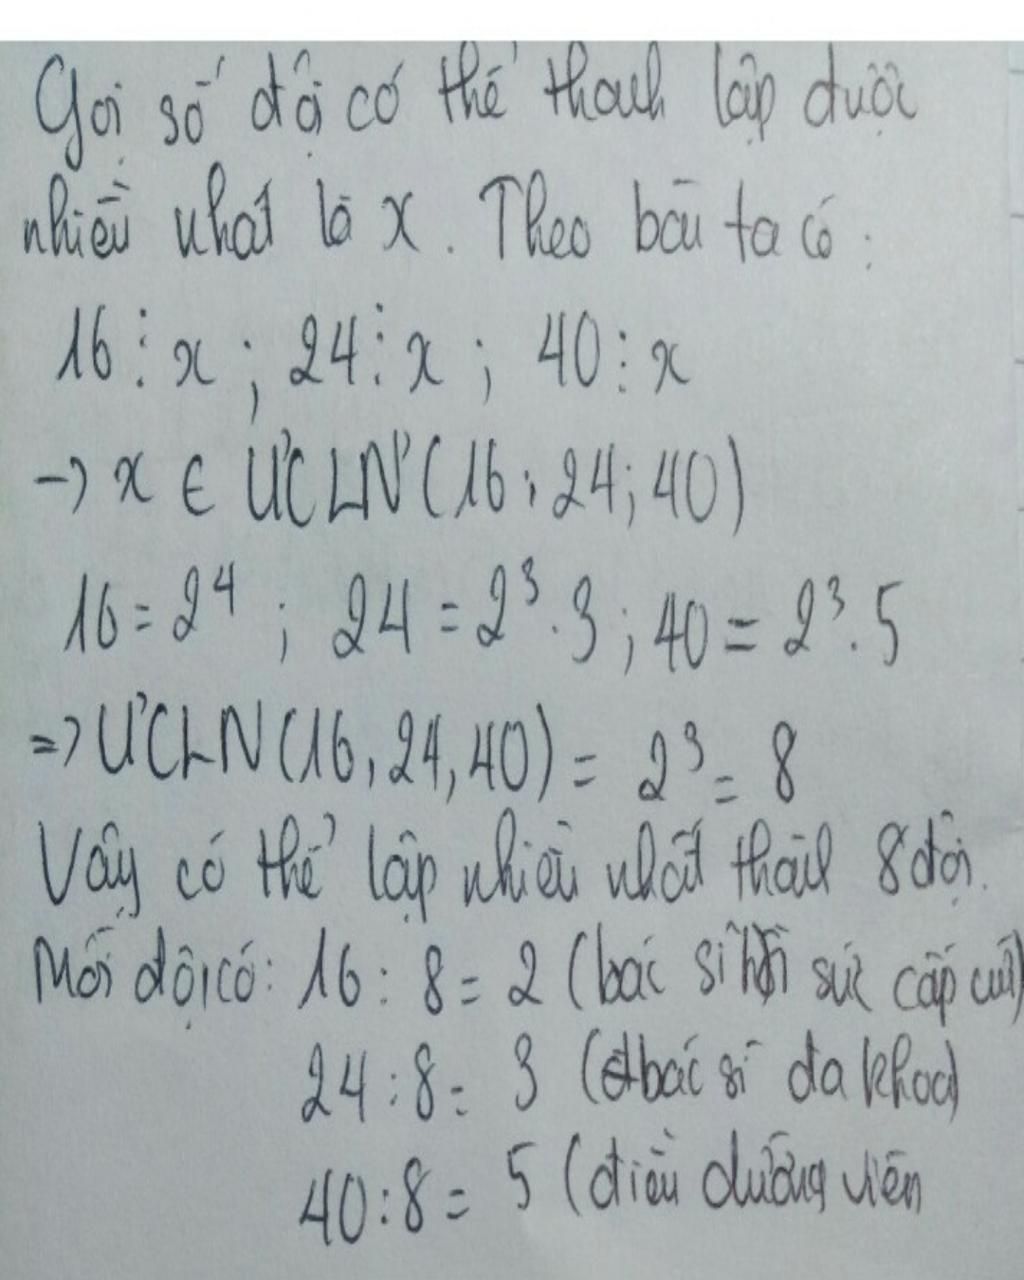 Gọi số đội có thể thành lập được
nhiều nhất là x. Theo bài ta có:
16 ⋮ x ; 24 ⋮ x ; 40 ⋮ x
-> x ∈ ƯCLN (16; 24; 40)
16 = 2⁴ ; 24 = 2³ . 3 ; 40 = 2³ . 5
=> ƯCLN (16, 24, 40) = 2³ = 8
Vậy có thể lập nhiều nhất thành 8 đội.
Mỗi đội có: 16 : 8 = 2 (bác sĩ hồi sức cấp cứu)
24 : 8 = 3 (bác sĩ đa khoa)
40 : 8 = 5 (điều dưỡng viên